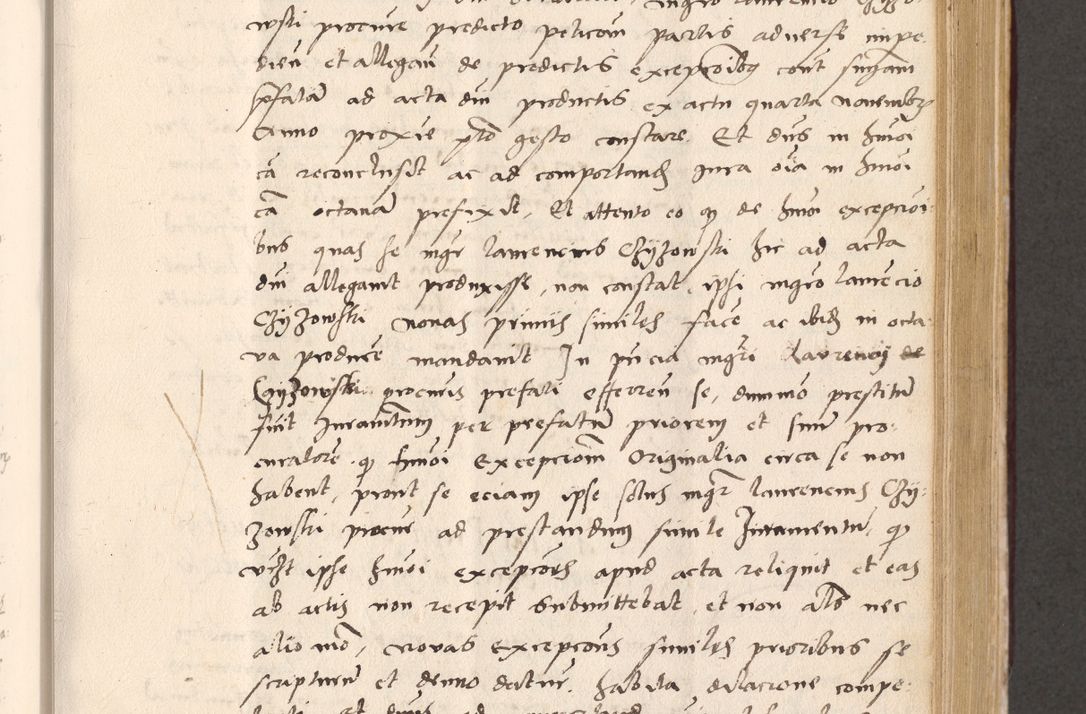 wski procure predicto peticom partis adverse impe-
dien et allegan de predictis excepcoibus cont suram
prefatam ad acta dni productis ex actu quarta novembr
Anno proxie pto gesto constare. Et dns in hmoi
ca reconclusit ac ad comportand Jura oia in hmoi
ca octavam prefixit. Et attento eo q de hmoi excepcioi-
bus quas se mgr laurencius Czyzowski hic ad acta
dni allegavit produxisse, non constat, ipsi mgro laurecio
Czyzowski novas primis similes face ac ibid in octa-
va produce mandavit In pncia mgri Laurencij de
Czyzowski procuris prefati efferren se, dummo prestitum
fuit Juramentum per prefatum priorem et suum pro-
curatore q hmoi Excepcionum Originalia circa se non
habent, prout se eciam ipse solus mgr laurencius Czy-
zowski procur ad prestandum simile Juramentum, q
videlicet ipse hmoi excepcoes apud acta reliquit et eas
ab actis non recepit submittebat, et non als nec
alio mo, Novas Excepcones similes prioribus se
scripturum et denuo daturum. habita dilacione compe-